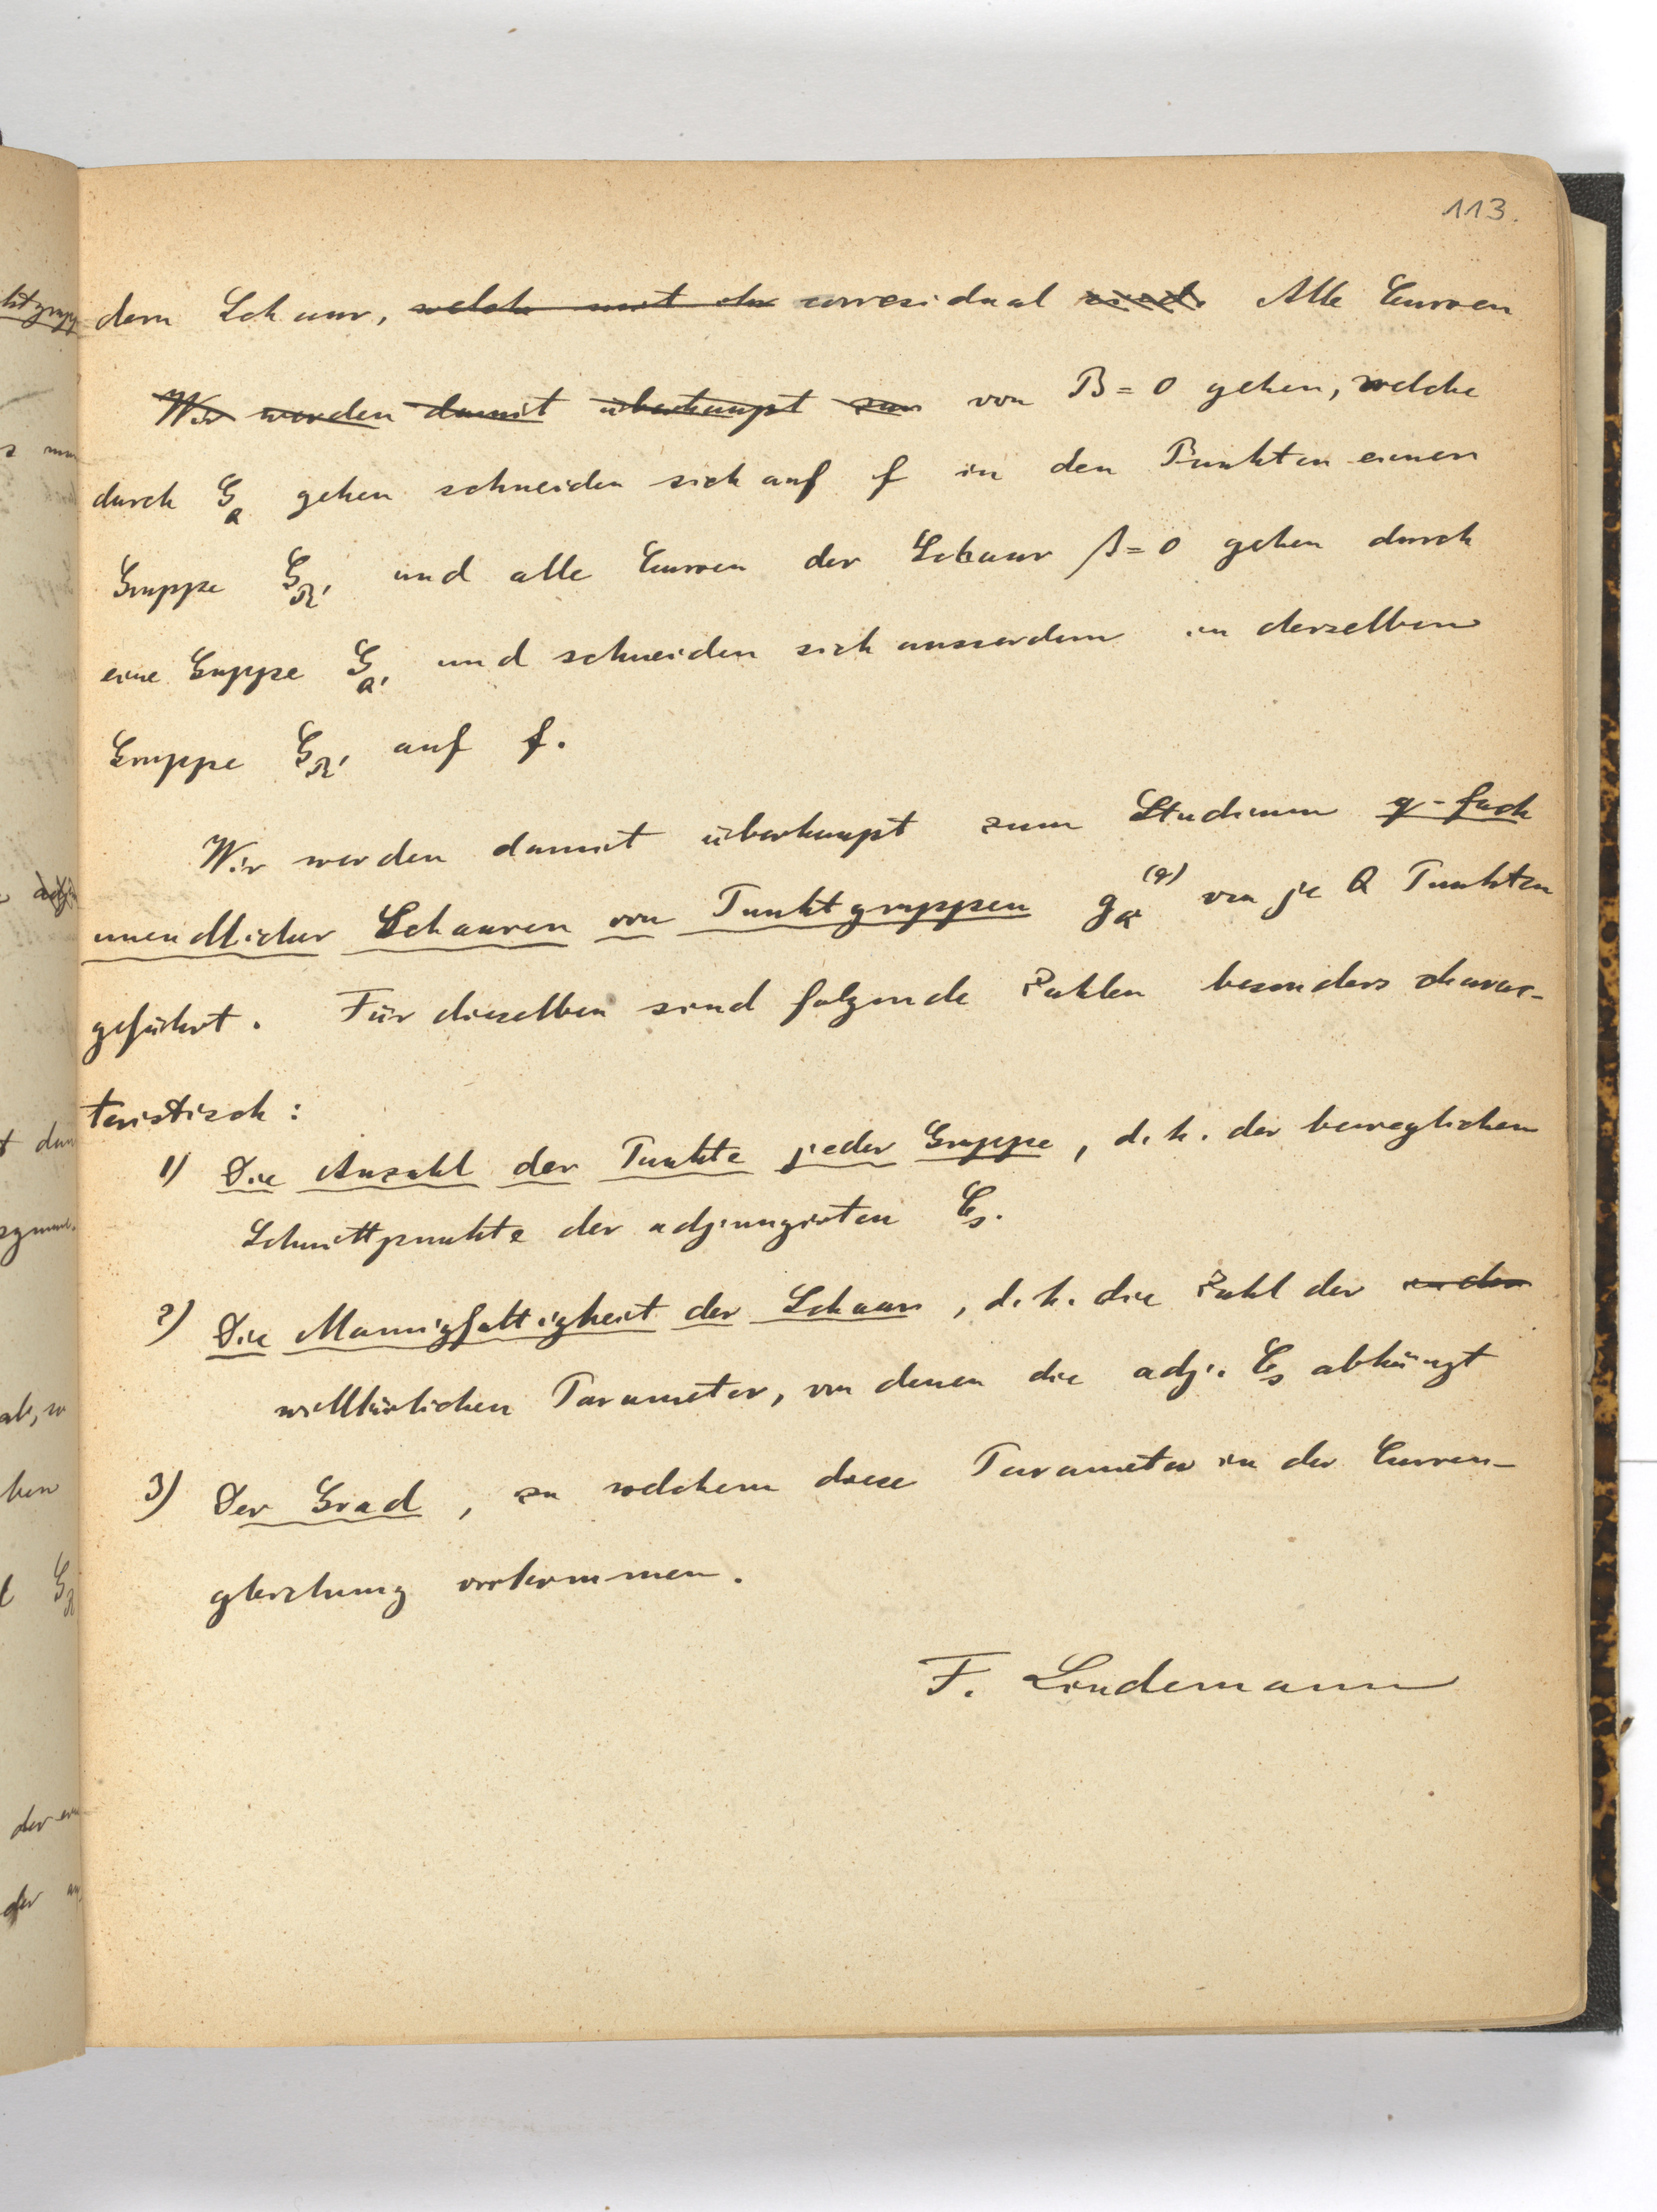 113.
dern Schaar, welche mit der corresidual sind. Alle Curven
Wir werden damit überhaupt zum von B = 0 gehen, welche
durch G_Q gehen schneiden sich auf f in den Punkten einen
Gruppe G_R' und alle Curven der Schaar β = 0 gehen durch
eine Guppe G_Q' und schneiden sich ausserdem in derselben
Gruppe G_R' auf f.
Wir werden damit überhaupt zum Studium q-fach
unendlicher Schaaren von Punktgruppen g_Q^(q) von je Q Punkten
geführt. Für dieselben sind folgende Zahlen besonders charac-
teristisch:
1) Die Anzahl der Punkte jeder Gruppe, d. h. der beweglichen
Schnittpunkte der adjungirten C_s.
2) Die Mannigfaltigkeit der Schaar, d. h. die Zahl der in der
willkürlichen Parameter, von denen die adj. C_s abhängt
3) Der Grad, zu welchem diese Parameter in der Curven-
gleichung vorkommen.
F. Lindemann